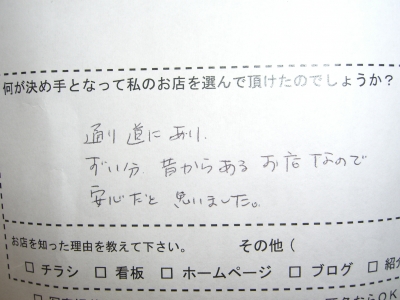 何が決め手となって私のお店を選んで頂けたのでしょうか?
通り道にあり、
ずい分 昔からある お店 なので
安心だと 思いました。
お店を知った理由を教えて下さい。 その他(
□ チラシ □ 看板 □ ホームページ □ ブログ □ 紹介